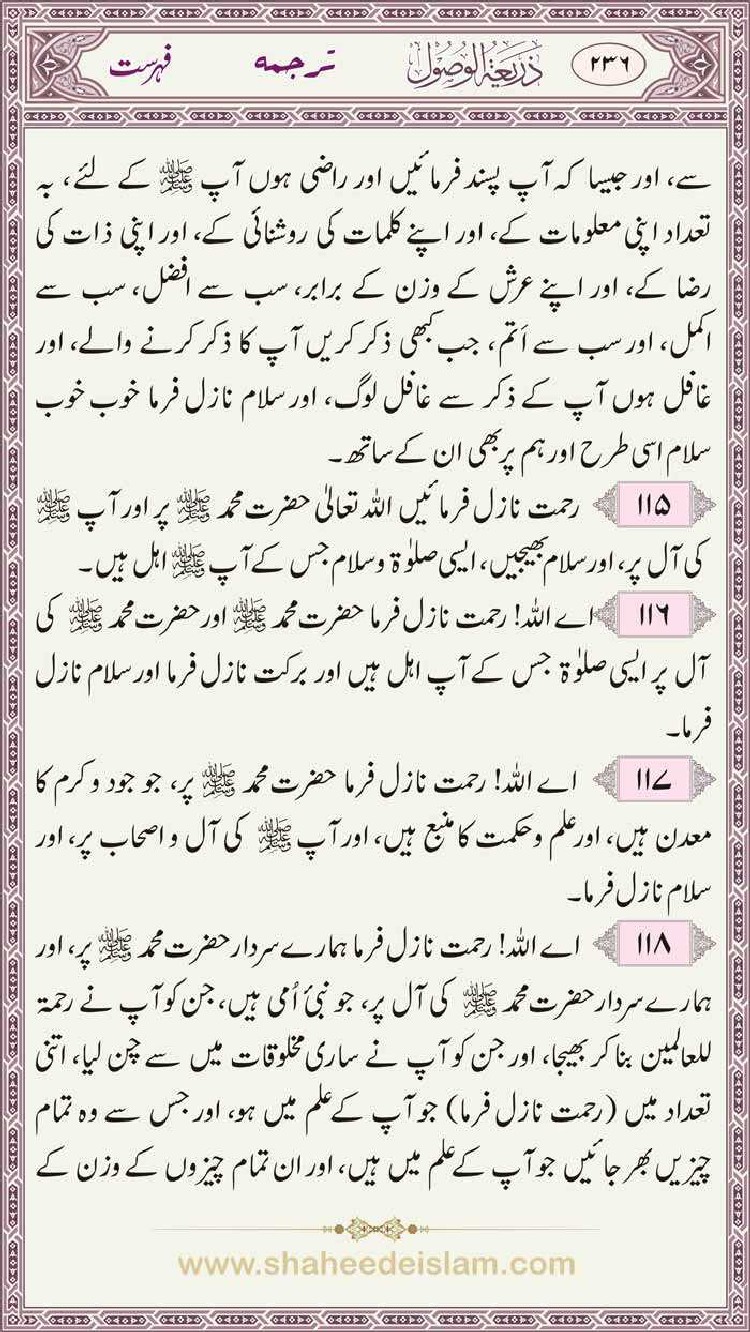 ۲۳۶ ذَرِیعَۃُ الوُصُول ترجمہ فہرست
سے، اور جیسا کہ آپ پسند فرمائیں اور راضی ہوں آپ ﷺ کے لئے، بہ
تعداد اپنی معلومات کے، اور اپنے کلمات کی روشنائی کے، اور اپنی ذات کی
رضا کے، اور اپنے عرش کے وزن کے برابر، سب سے افضل، سب سے
اکمل، اور سب سے اَتم، جب کبھی ذکر کریں آپ کا ذکر کرنے والے، اور
غافل ہوں آپ کے ذکر سے غافل لوگ، اور سلام نازل فرما خوب خوب
سلام اسی طرح اور ہم پر بھی ان کے ساتھ۔
۱۱۵ رحمت نازل فرمائیں اللہ تعالیٰ حضرت محمد ﷺ پر اور آپ ﷺ
کی آل پر، اور سلام بھیجیں، ایسی صلوٰۃ وسلام جس کے آپ ﷺ اہل ہیں۔
۱۱۶ اے اللہ! رحمت نازل فرما حضرت محمد ﷺ اور حضرت محمد ﷺ کی
آل پر ایسی صلوٰۃ جس کے آپ اہل ہیں اور برکت نازل فرما اور سلام نازل
فرما۔
۱۱۷ اے اللہ! رحمت نازل فرما حضرت محمد ﷺ پر، جو جود و کرم کا
معدن ہیں، اور علم و حکمت کا منبع ہیں، اور آپ ﷺ کی آل و اصحاب پر، اور
سلام نازل فرما۔
۱۱۸ اے اللہ! رحمت نازل فرما ہمارے سردار حضرت محمد ﷺ پر، اور
ہمارے سردار حضرت محمد ﷺ کی آل پر، جو نبیٔ اُمی ہیں، جن کو آپ نے رحمۃ
للعالمین بنا کر بھیجا، اور جن کو آپ نے ساری مخلوقات میں سے چن لیا، اتنی
تعداد میں (رحمت نازل فرما) جو آپ کے علم میں ہو، اور جس سے وہ تمام
چیزیں بھر جائیں جو آپ کے علم میں ہیں، اور ان تمام چیزوں کے وزن کے
www.shaheedeislam.com